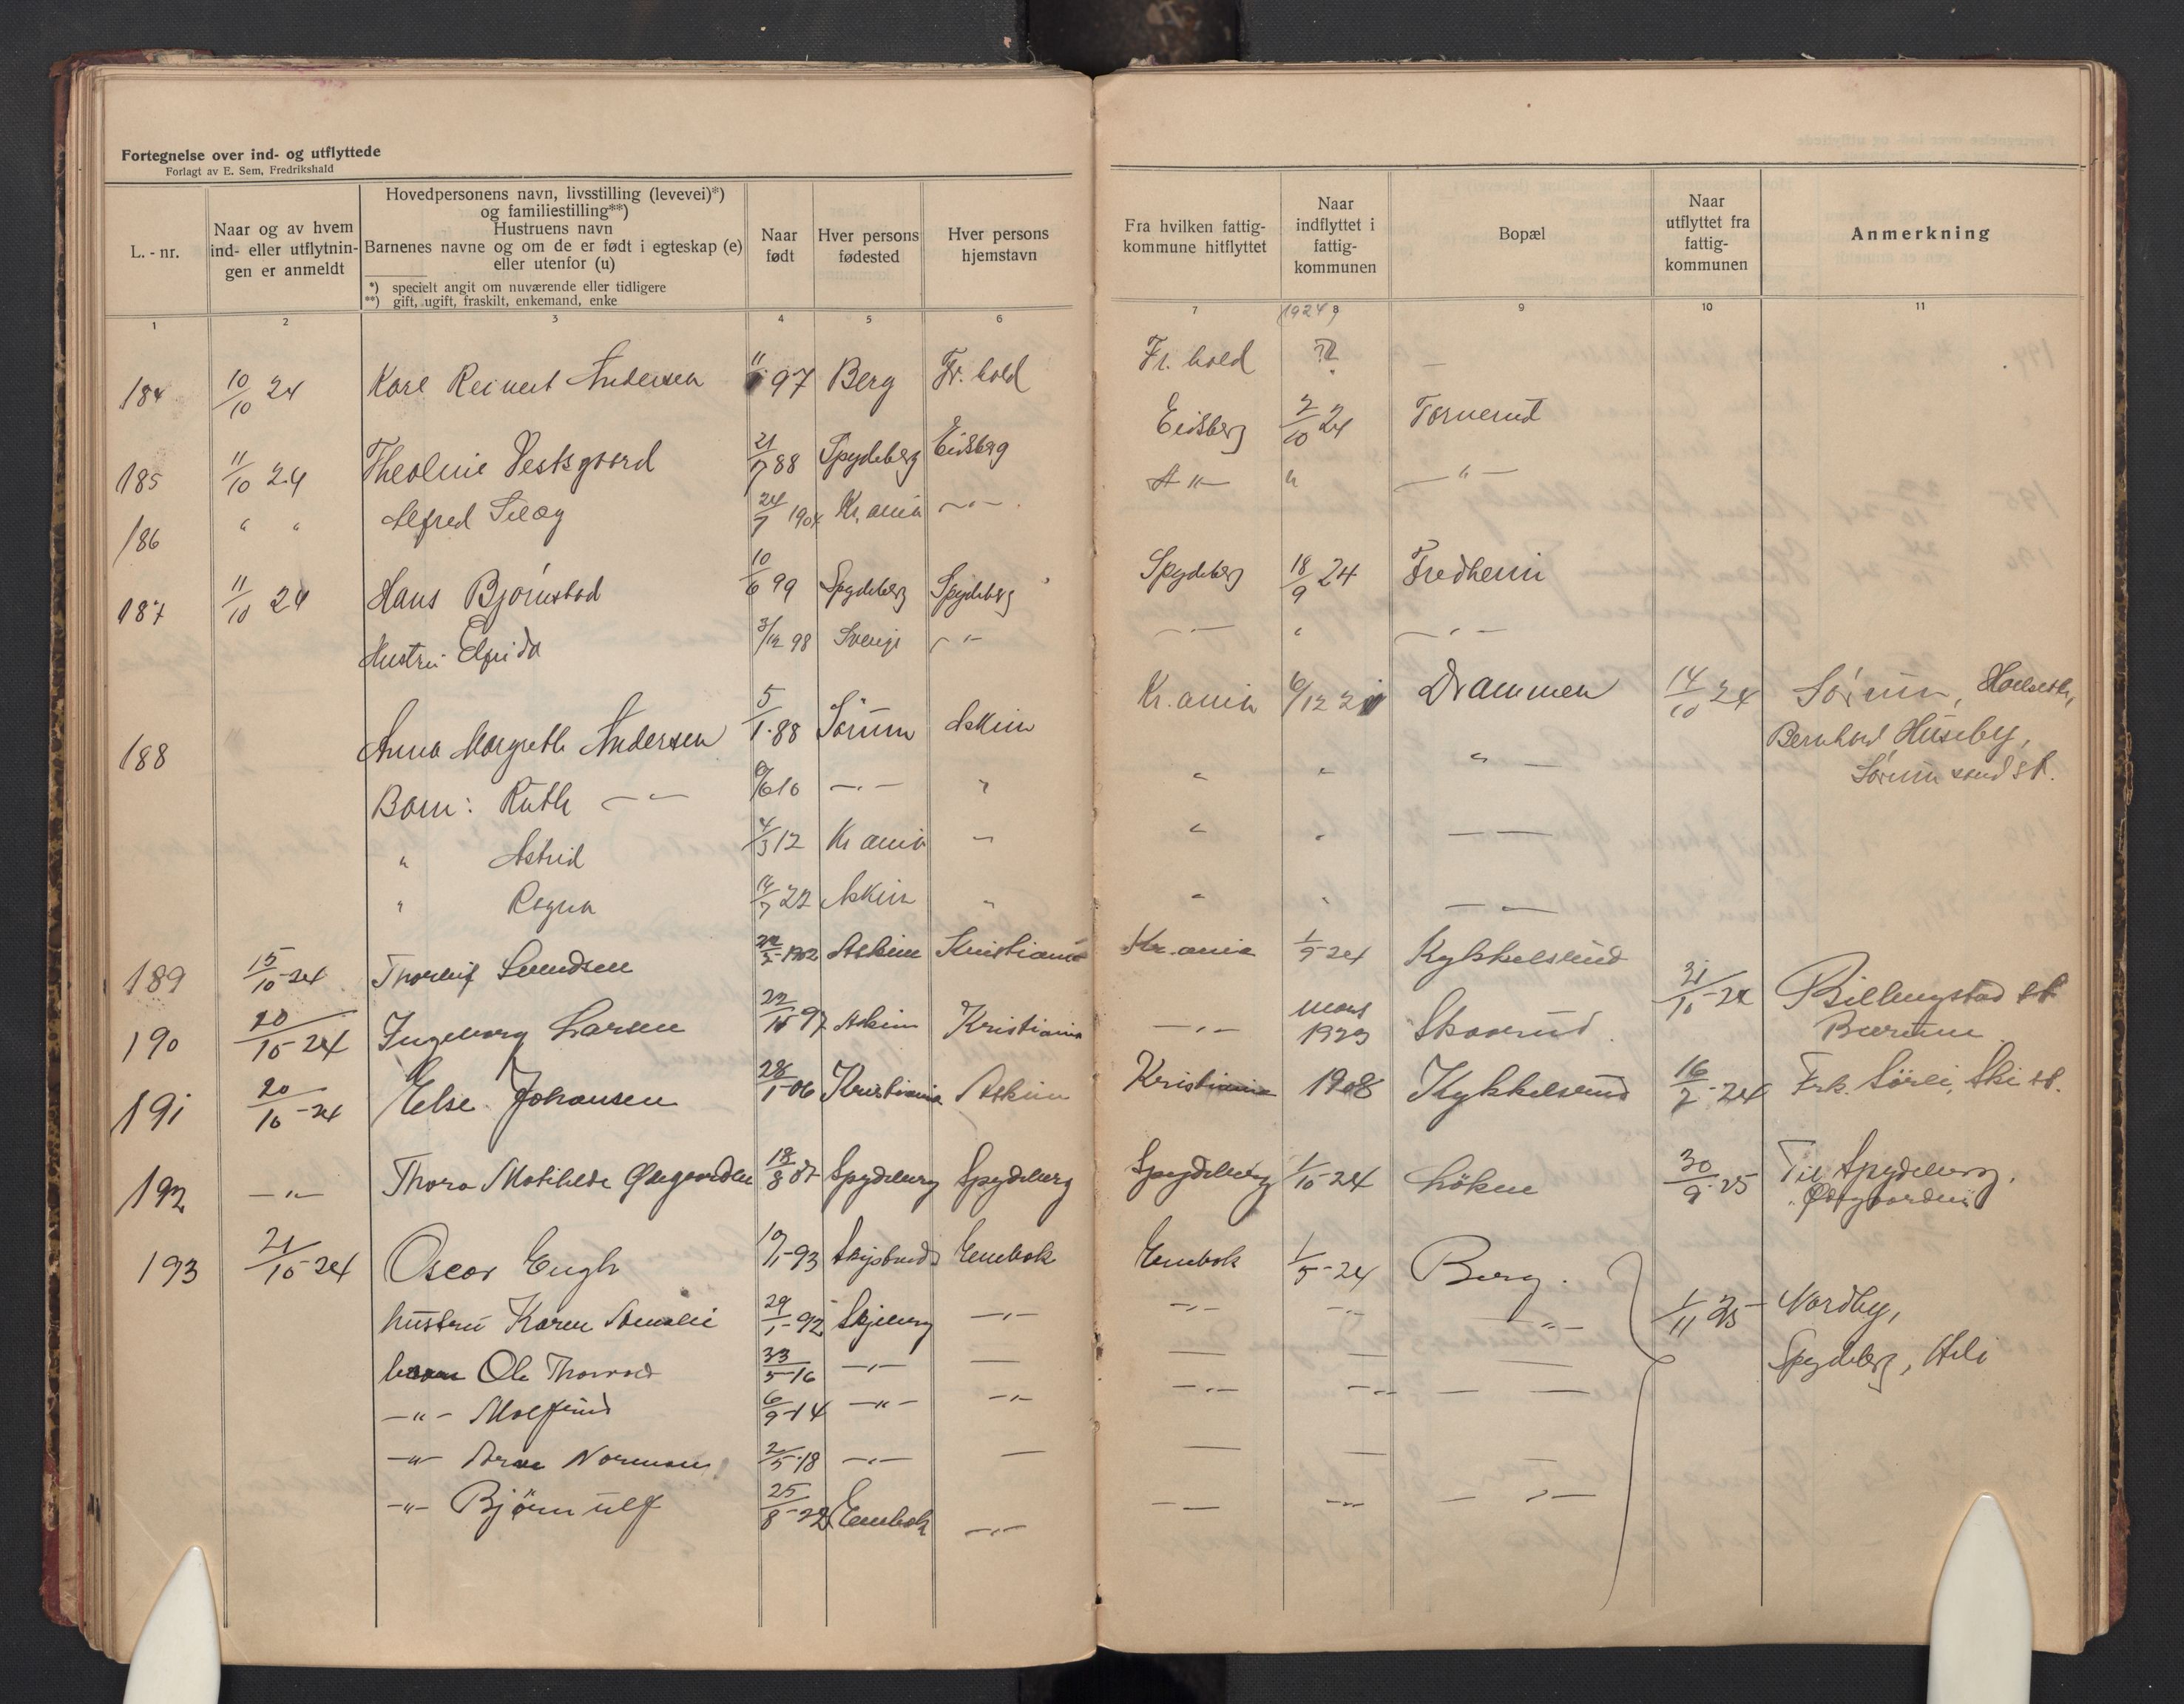 Fortegnelse over ind- og utflyttede
Forlagt av E. Sem, Fredrikshald
L.-nr.
Naar og av hvem ind- eller utflytningen er anmeldt
Hovedpersonens navn, livsstilling (levevei)*)
og familiestilling**)
Hustruens navn
Barnenes navne og om de er født i egteskap (e)
eller utenfor (u)
*) specielt angit om nuværende eller tidligere
**) gift, ugift, fraskilt, enkemand, enke
Naar født
Hver persons fødested
Hver persons hjemstavn
Fra hvilken fattigkommune hitflyttet
Naar indflyttet i fattigkommunen
Bopæl
Naar utflyttet fra fattigkommunen
Anmerkning
1 2 3 4 5 6 7 (1924) 8 9 10 11
184 10/10 24 Karl Reinert Andersen 97 Berg Fr. hald Fr. hald —
185 11/10 24 Theoline Vestgaard 21/7 88 Spydeberg Eidsberg Eidsberg 2/10 24 Tornerud
186 " " Alfred 24/7 1904 Kr.ania —"— —"— " —"—
187 11/10 24 Hans Bjørnstad 10/6 99 Spydeberg Spydeberg Spydeberg 18/9 24 Fredheim
Hustru Elfrida 3/12 98 Sverige —"— —"— " —"—
188 Anna Margrethe Andersen 5/1 88 Sörum Askim Kr.ania 6/12 Drammen 14/10 24 Sørum,
Bernhard Huseby,
Sørumsand st.
Barn: Ruth —"— 9/6 10 —"— " " " " —
" Astrid 4/3 12 Kr ania " " " — —
" Ragna 14/7 22 Askim " " " — —
189 15/10-24 Thorleif Svendsen 1902 Askim Kristiania Kr.ania 1/9-24 Kykkelsrud
190 20/10-24 Ingeborg Larsen 22/10 97 Askim Kristiania —"— mars 1923 Skaarud 31/10-24 Billingstad st
Bærum
191 20/10-24 Else Johansen 28/1-06 Kristiania Askim Kristiania 1908 Kykkelsrud 16/2-24 Frk. Sörli, Ski st.
192 —"— Thora Mathilde 18/8 Spydeberg Spydeberg Spydeberg 1/10-24 Löken 30/9-25 Til Spydeberg,
193 21/10-24 Oscar Engh 19/1-93 Enebak Enebak 1/5-24 Berg.
hustru Karen Amalie 29/1-92 Skjeberg —"— —"— —"— —"— 1/11 25 Nordby,
barn Ole Thorvald 23/5-16 —"— — — — — Spydeberg, Heli
—"— Molfrid 6/9-14 —"— —"— —"— —"— — —
—"— Arne Norman 2/5-18 —"— — — —
—"— Björn ulf 25/8-22 Enebak —"— — — —"— — —"—